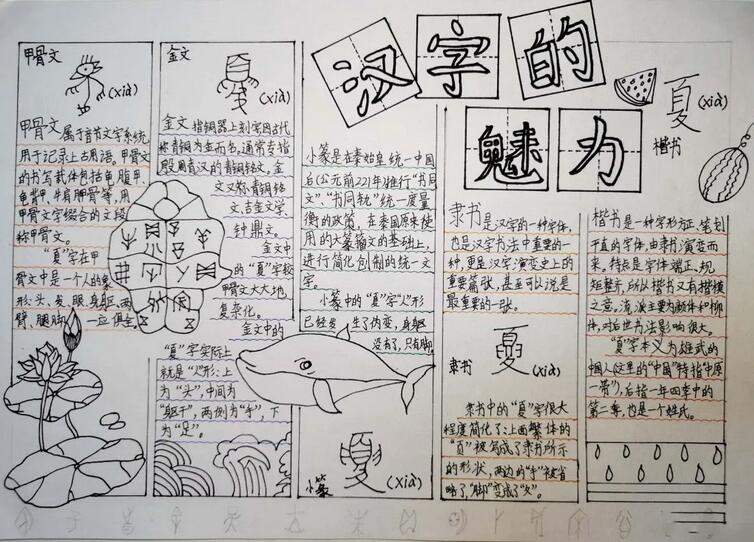 汉字的
魅力
甲骨文
(xià)
甲骨文属于音节文字系统,
用于记录上古用语。甲骨文
的书写载体包括龟腹甲、
龟背甲、牛肩胛骨等,用
甲骨文字缀合的文段
称甲骨文。
"夏"字在甲
骨文中是一个人的象
形:头、发、眼、身躯、两
臂、腿脚,一应俱全。
金文
(xià)
金文指铜器上刻字因古代
称青铜为金而名,通常专指
殷周青汉的青铜铭文,金
文又称:青铜铭
文、吉金文字、
钟鼎文。
金文中
的"夏"字较
甲骨文大大地
复杂化。
金文中的
"夏"字实际上
就是"人"形:上
为"头",中间为
"躯干",两侧为"手",下
为"足"。
小篆是在秦始皇统一中国
后(公元前221年)推行"书同
文","书同轨"统一度量
衡的政策,在秦国原来使
用的大篆籀文的基础上,
进行简化创制的统一文
字。
小篆中的"夏"字"人"形
已经发生了伪变,身躯
没有了,只有脚
小篆
(xià)
隶书是汉字的一种字体,
也是汉字书法中重要的一
种,更是汉字演变史上的
重要篇张,甚至可以说是
最重要的一张。
隶书
(xià)
隶书中的"夏"字很大
程度简化了:上面繁体的
"页"被写成了隶书所示
的形状,两边的"手"被省
略了,"脚"变成了"夂"。
夏(xià)
楷书
楷书是一种字形方正、笔划
平直的字体,由隶书演变而
来,特点是字体端正、规
矩整齐,所以楷书又有楷模
之意,流派主要为颜体和柳
体,对后世书法影响很大。
"夏"字本义为雄武的
中国人(这里的"中国"特指"中原
一带"),后指一年四季中的
第二季,也是一个姓氏。